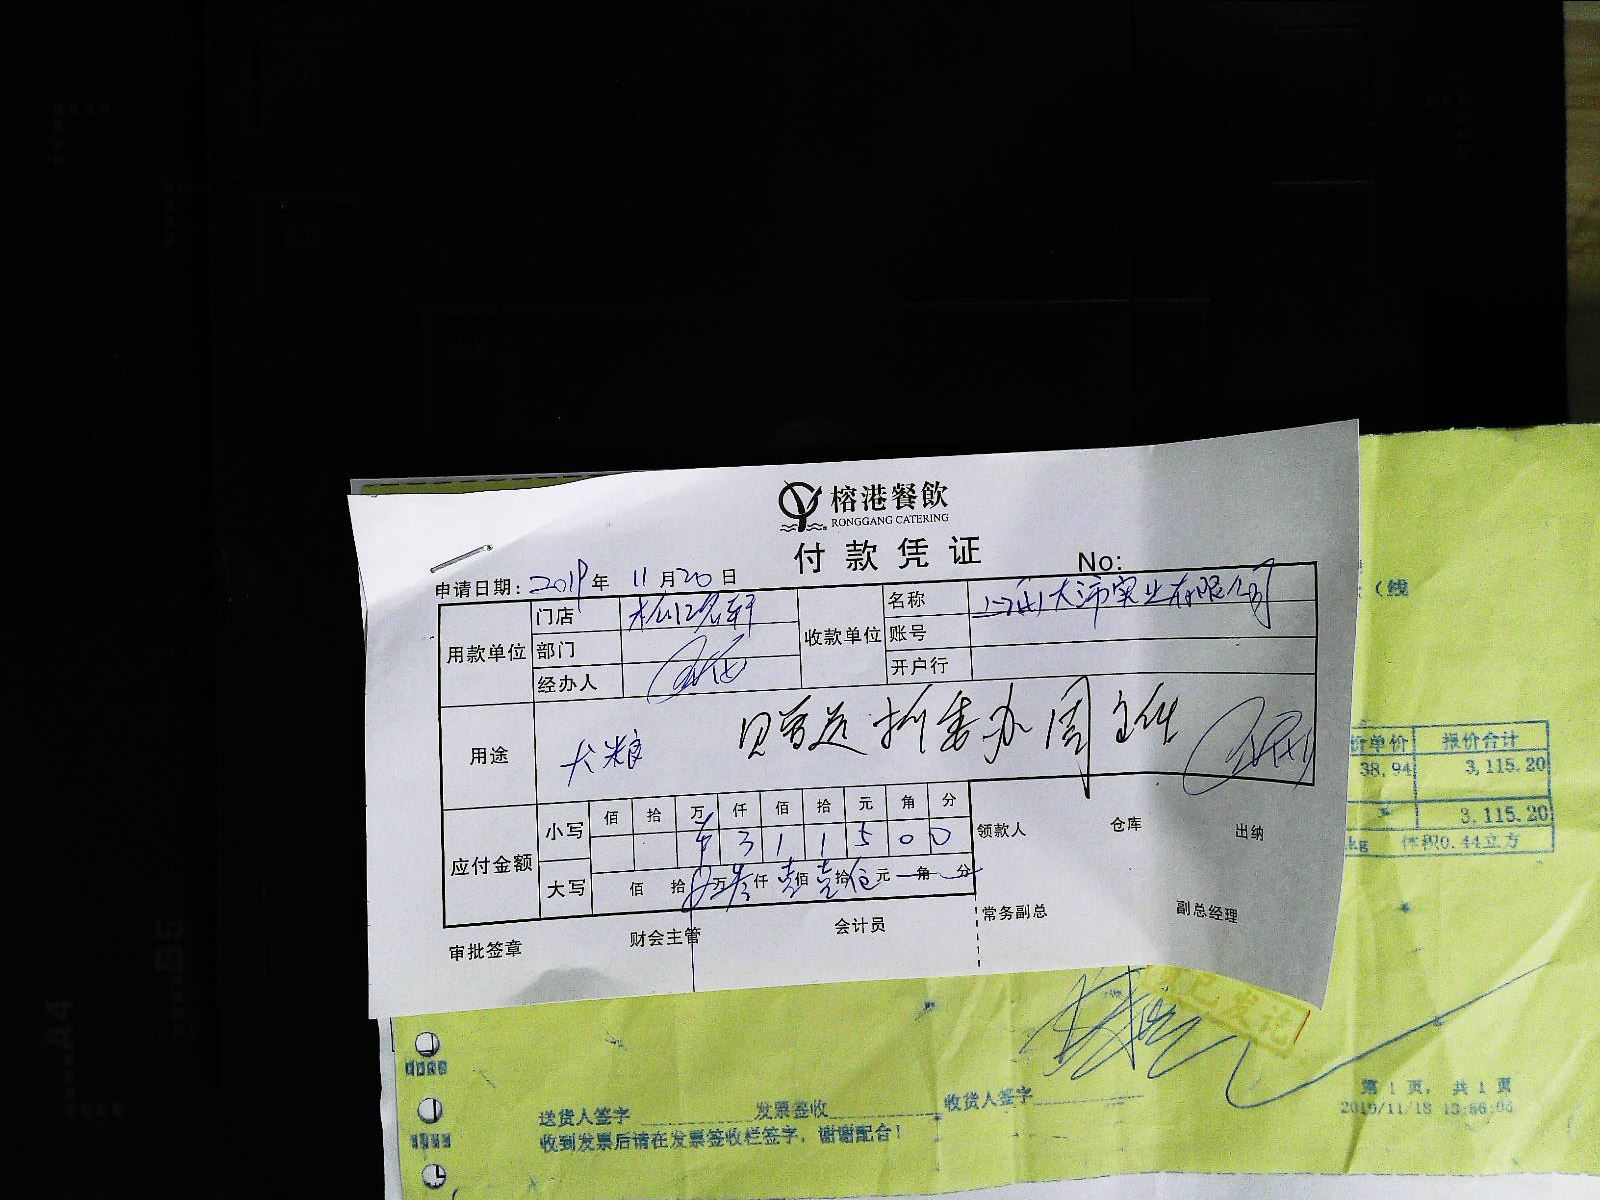 榕港餐飲
RONGGANG CATERING
付款凭证
No:
申请日期: 2019年 11月20日
用款单位 门店
部门
经办人
收款单位 名称 上海大沛实业有限公司
账号
开户行
用途 犬粮 赠送 拆委办周主任
应付金额 小写 佰 拾 万 仟 佰 拾 元 角 分
¥ 3 1 1 5 0 0
大写 佰 拾 万叁仟壹佰壹拾伍元 角 分
领款人 仓库 出纳
审批签章 财会主管 会计员 常务副总 副总经理
(线
价单价 报价合计
38.94 3,115.20
3,115.20
kg 体积0.44立方
已发讫
送货人签字 发票签收 收货人签字
收到发票后请在发票签收栏签字，谢谢配合!
第 1 页, 共 1 页
2019/11/18 13:56:06
A4
B5